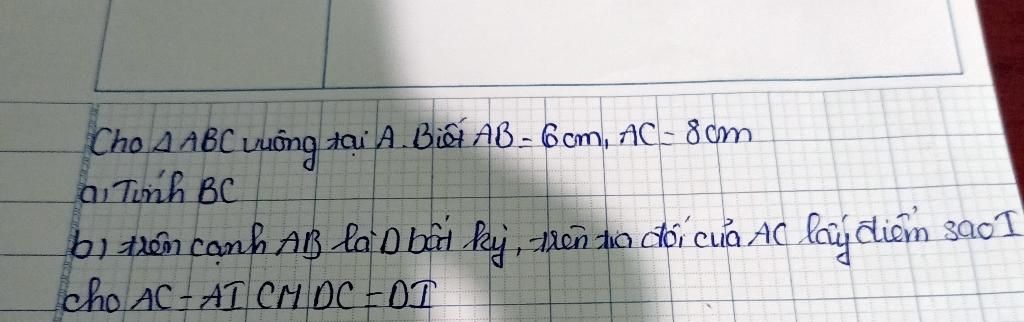 Cho Δ ABC vuông tại A. Biết AB = 6cm, AC = 8cm
a, Tính BC
b) trên cạnh AB lấ D bất kỳ, trên tia đối của AC lấy điểm sao I
cho AC = AI CM DC = DI